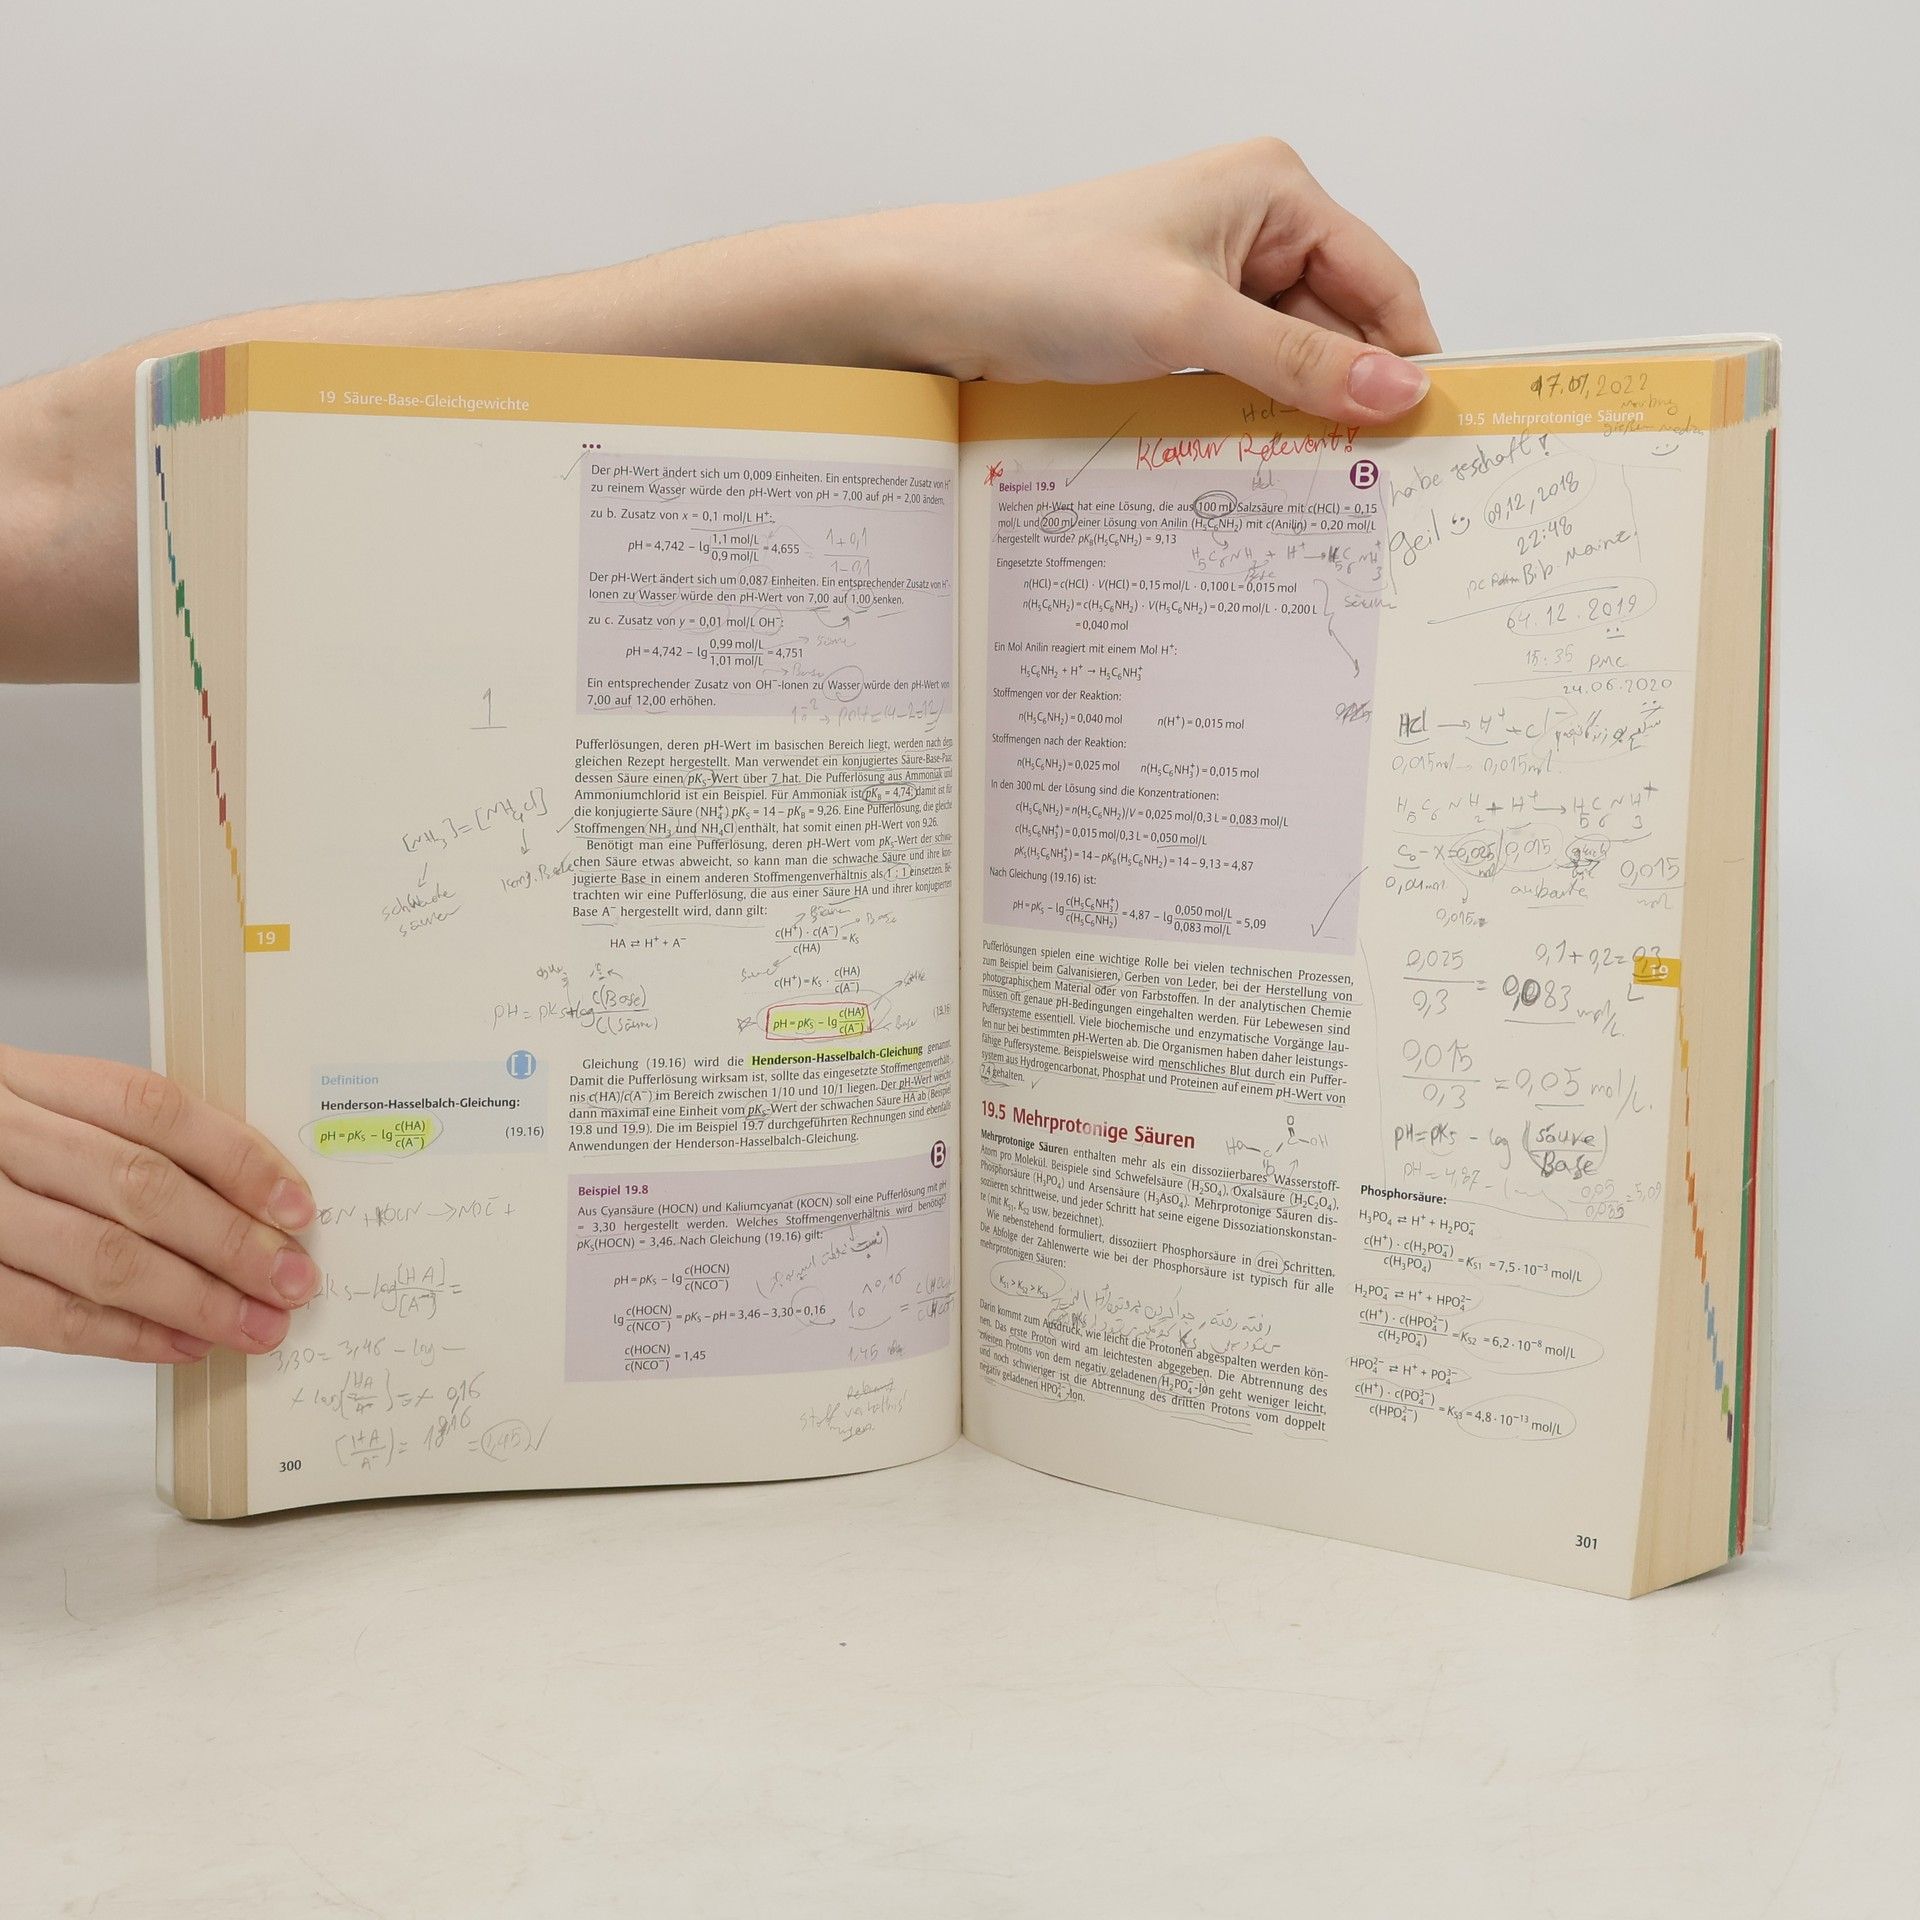 19 Säure-Base-Gleichgewichte
Der pH-Wert ändert sich um 0,009 Einheiten. Ein entsprechender Zusatz von H⁺
zu reinem Wasser würde den pH-Wert von pH = 7,00 auf pH = 2,00 ändern.
zu b. Zusatz von x = 0,1 mol/L H⁺:
pH = 4,742 – lg 1,1 mol/L / 0,9 mol/L = 4,655
1+0,1
1-0,1
Der pH-Wert ändert sich um 0,087 Einheiten. Ein entsprechender Zusatz von H⁺-
Ionen zu Wasser würde den pH-Wert von 7,00 auf 1,00 senken.
zu c. Zusatz von y = 0,01 mol/L OH⁻:
pH = 4,742 – lg 0,99 mol/L / 1,01 mol/L = 4,751
Säure
Base
Ein entsprechender Zusatz von OH⁻-Ionen zu Wasser würde den pH-Wert von
7,00 auf 12,00 erhöhen.
1
Pufferlösungen, deren pH-Wert im basischen Bereich liegt, werden nach dem
gleichen Rezept hergestellt. Man verwendet ein konjugiertes Säure-Base-Paar,
dessen Säure einen pKS-Wert über 7 hat. Die Pufferlösung aus Ammoniak und
Ammoniumchlorid ist ein Beispiel. Für Ammoniak ist pKB = 4,74; damit ist für
die konjugierte Säure (NH₄⁺) pKS = 14 – pKB = 9,26. Eine Pufferlösung, die gleiche
Stoffmengen NH₃ und NH₄Cl enthält, hat somit einen pH-Wert von 9,26.
Benötigt man eine Pufferlösung, deren pH-Wert vom pKS-Wert der schwa-
chen Säure etwas abweicht, so kann man die schwache Säure und ihre kon-
jugierte Base in einem anderen Stoffmengenverhältnis als 1 : 1 einsetzen. Be-
trachten wir eine Pufferlösung, die aus einer Säure HA und ihrer konjugierten
Base A⁻ hergestellt wird, dann gilt:
[NH₃]=[NH₄Cl]
schwache
säuren
konj. Base
HA ⇌ H⁺ + A⁻
c(H⁺) · c(A⁻) / c(HA) = KS
c(H⁺) = KS · c(HA) / c(A⁻)
pH = pKS – lg c(HA) / c(A⁻)
(19.16)
pH = pKs+log c(Base) / c(Säure)
Definition
Henderson-Hasselbalch-Gleichung:
pH = pKS – lg c(HA) / c(A⁻) (19.16)
Gleichung (19.16) wird die Henderson-Hasselbalch-Gleichung genannt.
Damit die Pufferlösung wirksam ist, sollte das eingesetzte Stoffmengenverhält-
nis c(HA)/c(A⁻) im Bereich zwischen 1/10 und 10/1 liegen. Der pH-Wert weicht
dann maximal eine Einheit vom pKS-Wert der schwachen Säure HA ab (Beispiel
19.8 und 19.9). Die im Beispiel 19.7 durchgeführten Rechnungen sind ebenfalls
Anwendungen der Henderson-Hasselbalch-Gleichung.
B
Beispiel 19.8
Aus Cyansäure (HOCN) und Kaliumcyanat (KOCN) soll eine Pufferlösung mit pH
= 3,30 hergestellt werden. Welches Stoffmengenverhältnis wird benötigt?
pKS(HOCN) = 3,46. Nach Gleichung (19.16) gilt:
pH = pKS – lg c(HOCN) / c(NCO⁻)
lg c(HOCN) / c(NCO⁻) = pKS – pH = 3,46 – 3,30 = 0,16
c(HOCN) / c(NCO⁻) = 1,45
3,30 = 3,46 – log
[HA / A⁻] = = 1,45
300
17.07.2022
19.5 Mehrprotonige Säuren
Klausur Relevant!
B
Beispiel 19.9
Welchen pH-Wert hat eine Lösung, die aus 100 mL Salzsäure mit c(HCl) = 0,15
mol/L und 200 mL einer Lösung von Anilin (H₅C₆NH₂) mit c(Anilin) = 0,20 mol/L
hergestellt wurde? pKB(H₅C₆NH₂) = 9,13
Eingesetzte Stoffmengen:
n(HCl) = c(HCl) · V(HCl) = 0,15 mol/L · 0,100 L = 0,015 mol
n(H₅C₆NH₂) = c(H₅C₆NH₂) · V(H₅C₆NH₂) = 0,20 mol/L · 0,200 L
= 0,040 mol
Ein Mol Anilin reagiert mit einem Mol H⁺:
H₅C₆NH₂ + H⁺ → H₅C₆NH₃⁺
Stoffmengen vor der Reaktion:
n(H₅C₆NH₂) = 0,040 mol n(H⁺) = 0,015 mol
Stoffmengen nach der Reaktion:
n(H₅C₆NH₂) = 0,025 mol n(H₅C₆NH₃⁺) = 0,015 mol
In den 300 mL der Lösung sind die Konzentrationen:
c(H₅C₆NH₂) = n(H₅C₆NH₂)/V = 0,025 mol/0,3 L = 0,083 mol/L
c(H₅C₆NH₃⁺) = 0,015 mol/0,3 L = 0,050 mol/L
pKS(H₅C₆NH₃⁺) = 14 – pKB(H₅C₆NH₂) = 14 – 9,13 = 4,87
Nach Gleichung (19.16) ist:
pH = pKS – lg c(H₅C₆NH₃⁺) / c(H₅C₆NH₂) = 4,87 – lg 0,050 mol/L / 0,083 mol/L = 5,09
habe geschaft!
geil
09,12,2018
22:48
Bib. Mainz
04.12.2019
15:35
24.06.2020
HCl → H⁺ + Cl⁻
0,015mol → 0,015mol
H₅C₆NH₂ + H⁺ → H₅C₆NH₃⁺
0,015
mol
0,025 / 0,3 = 0,083 mol/L
0,1+0,2=0,3
L
19
0,015 / 0,3 = 0,05 mol/L.
pH=pKs – log (säure / Base)
Pufferlösungen spielen eine wichtige Rolle bei vielen technischen Prozessen,
zum Beispiel beim Galvanisieren, Gerben von Leder, bei der Herstellung von
photographischem Material oder von Farbstoffen. In der analytischen Chemie
müssen oft genaue pH-Bedingungen eingehalten werden. Für Lebewesen sind
Puffersysteme essentiell. Viele biochemische und enzymatische Vorgänge lau-
fen nur bei bestimmten pH-Werten ab. Die Organismen haben daher leistungs-
fähige Puffersysteme. Beispielsweise wird menschliches Blut durch ein Puffer-
system aus Hydrogencarbonat, Phosphat und Proteinen auf einem pH-Wert von
7,4 gehalten.
19.5 Mehrprotonige Säuren
Mehrprotonige Säuren enthalten mehr als ein dissoziierbares Wasserstoff-
Atom pro Molekül. Beispiele sind Schwefelsäure (H₂SO₄), Oxalsäure (H₂C₂O₄),
Phosphorsäure (H₃PO₄) und Arsensäure (H₃AsO₄). Mehrprotonige Säuren dis-
soziieren schrittweise, und jeder Schritt hat seine eigene Dissoziationskonstan-
te (mit KS1, KS2 usw. bezeichnet).
Wie nebenstehend formuliert, dissoziiert Phosphorsäure in drei Schritten.
Die Abfolge der Zahlenwerte wie bei der Phosphorsäure ist typisch für alle
mehrprotonigen Säuren:
KS1 > KS2 > KS3
Darin kommt zum Ausdruck, wie leicht die Protonen abgespalten werden kön-
nen. Das erste Proton wird am leichtesten abgegeben. Die Abtrennung des
zweiten Protons von dem negativ geladenen H₂PO₄⁻-Ion geht weniger leicht,
und noch schwieriger ist die Abtrennung des dritten Protons vom doppelt
negativ geladenen HPO₄²⁻-Ion.
Phosphorsäure:
H₃PO₄ ⇌ H⁺ + H₂PO₄⁻
c(H⁺) · c(H₂PO₄⁻) / c(H₃PO₄) = KS1 = 7,5 · 10⁻³ mol/L
H₂PO₄⁻ ⇌ H⁺ + HPO₄²⁻
c(H⁺) · c(HPO₄²⁻) / c(H₂PO₄⁻) = KS2 = 6,2 · 10⁻⁸ mol/L
HPO₄²⁻ ⇌ H⁺ + PO₄³⁻
c(H⁺) · c(PO₄³⁻) / c(HPO₄²⁻) = KS3 = 4,8 · 10⁻¹³ mol/L
301